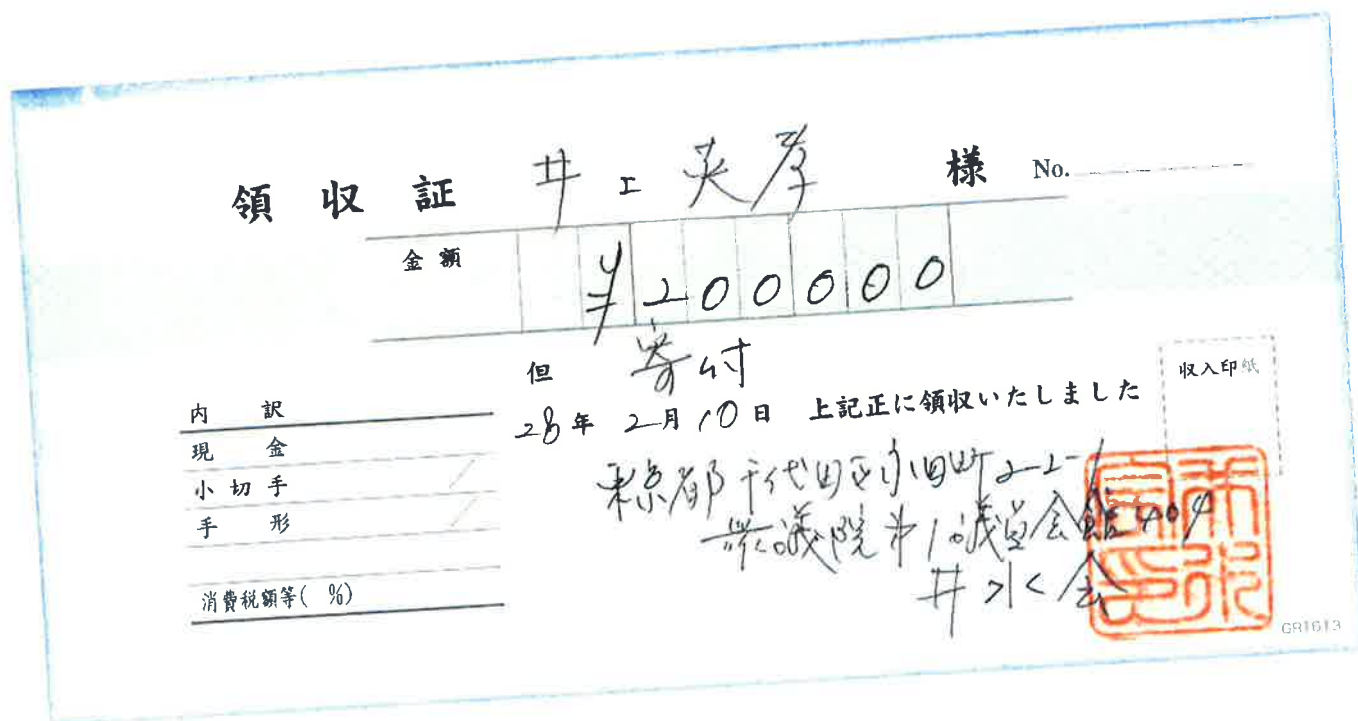 領収証 井上英孝 様 No.
金額 ¥200000
但 寄付
28年 2月 10日 上記正に領収いたしました
収入印紙
内訳
現金
小切手
手形
消費税額等( %)
東京都千代田区永田町2-2-1
衆議院第1議員会館404
井水会
GR1613